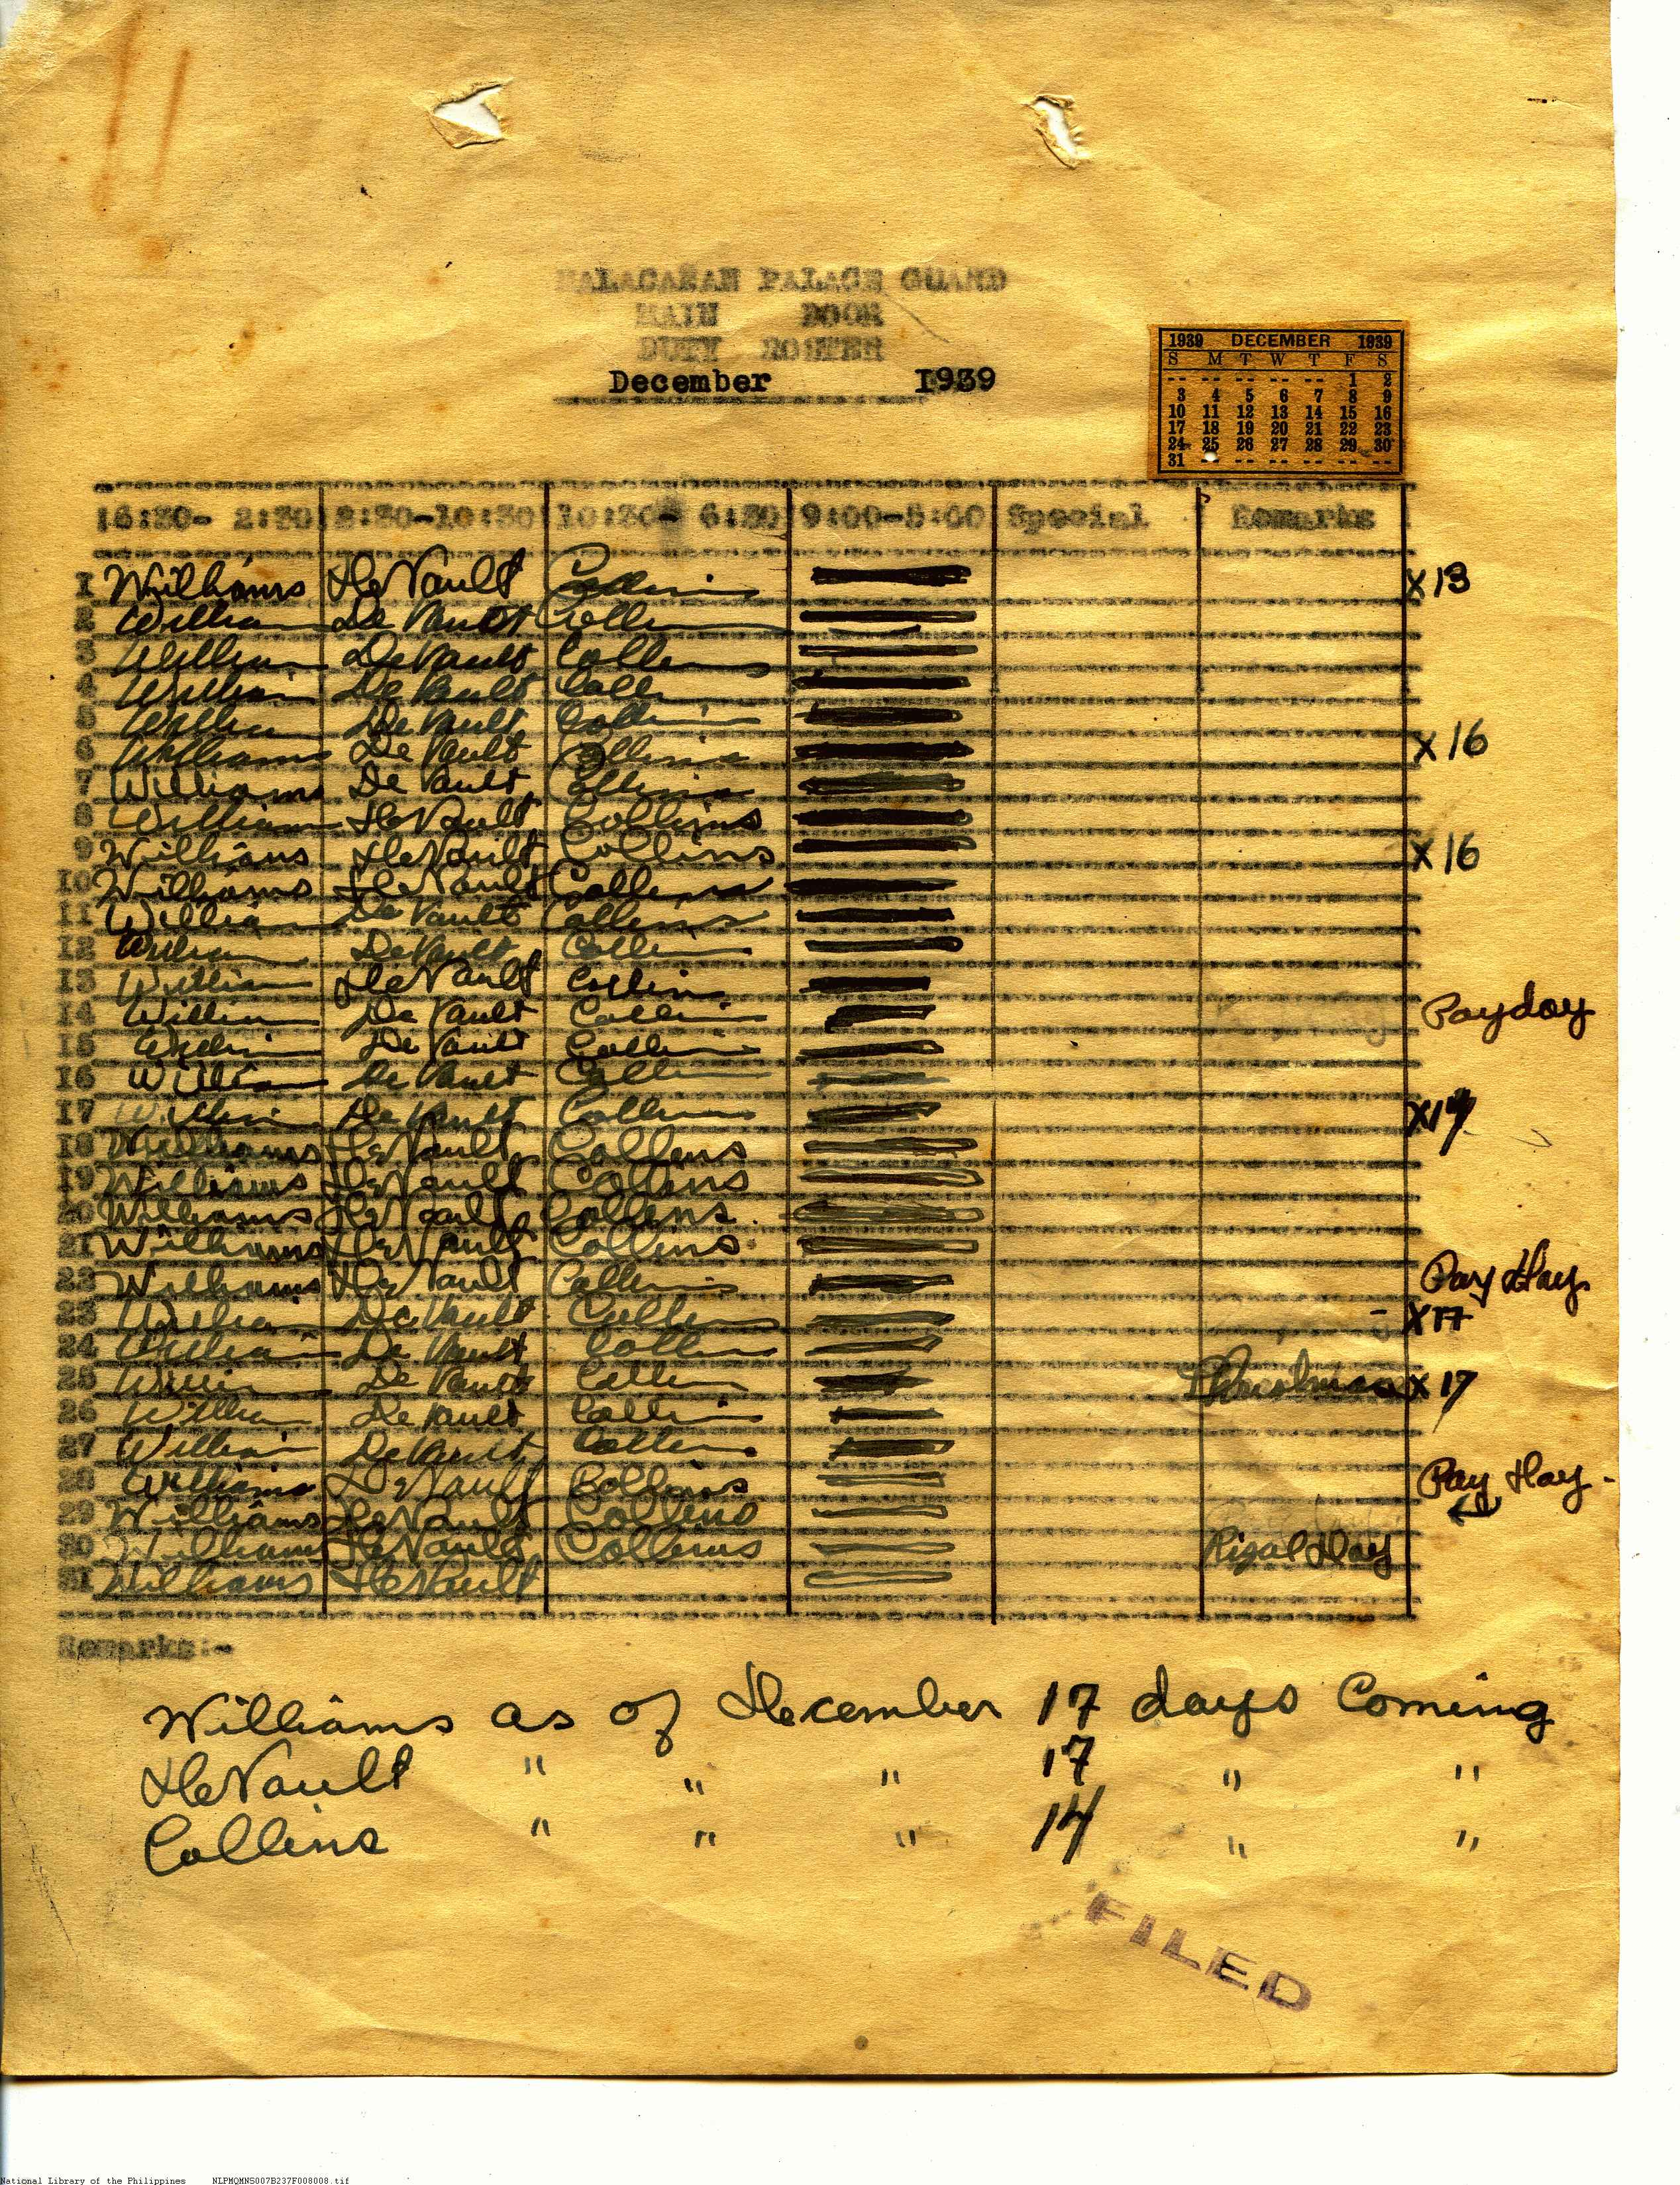 MALACAÑAN PALACE GUARD
MAIN DOOR
DUTY ROSTER
December 1939
1939 DECEMBER 1939
S M T W T F S
-- -- -- -- -- 1 2
3 4 5 6 7 8 9
10 11 12 13 14 15 16
17 18 19 20 21 22 23
24 25 26 27 28 29 30
31 -- -- -- -- -- --
6:30- 2:30 2:30-10:30 10:30- 6:30 9:00-5:00 Special Remarks
1 Williams DeVault Collins X13
2 William DeVault Collin
3 William DeVault Collins
4 William DeVault Coll
5 William DeVault Collin
6 Williams DeVault Collins X 16
7 Williams DeVault Collins
8 William DeVault Collins
9 Williams DeVault Collins X 16
10 Williams DeVault Collins
11 William DeVault Collins
12 William DeVault Collin
13 William DeVault Collins
14 William DeVault Collin Payday
15 William DeVault Collin
16 William DeVault Collin
17 William DeVault Collins X17
18 Williams DeVault Collins
19 Williams DeVault Collins
20 Williams DeVault Collins
21 Williams DeVault Collins
22 Williams DeVault Collins Pay Day
23 William DeVault Collins X17
24 William DeVault Collin
25 William DeVault Collin X 17
26 William DeVault Collin
27 William DeVault Collins
28 Williams DeVault Collins Pay Day -
29 Williams DeVault Collins
30 Williams DeVault Collins Rizal Day
31 Williams DeVault
Remarks:-
Williams as of December 17 days Coming
DeVault " " " 17 " "
Collins " " " 14 " "
FILED
National Library of the Philippines NLPMQMNS007B237F008008.tif